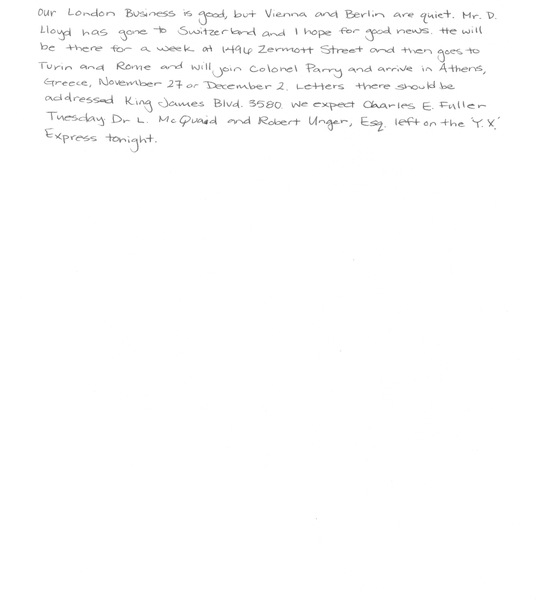 Our London Business is good, but Vienna and Berlin are quiet. Mr. D.
Lloyd has gone to Switzerland and I hope for good news. He will
be there for a week at 1496 Zermott Street and then goes to
Turin and Rome and will join Colonel Parry and arrive in Athens,
Greece, November 27 or December 2. Letters there should be
addressed King James Blvd. 3580. We expect Charles E. Fuller
Tuesday. Dr L. McQuaid and Robert Unger, Esq. left on the 'Y.X.'
Express tonight.